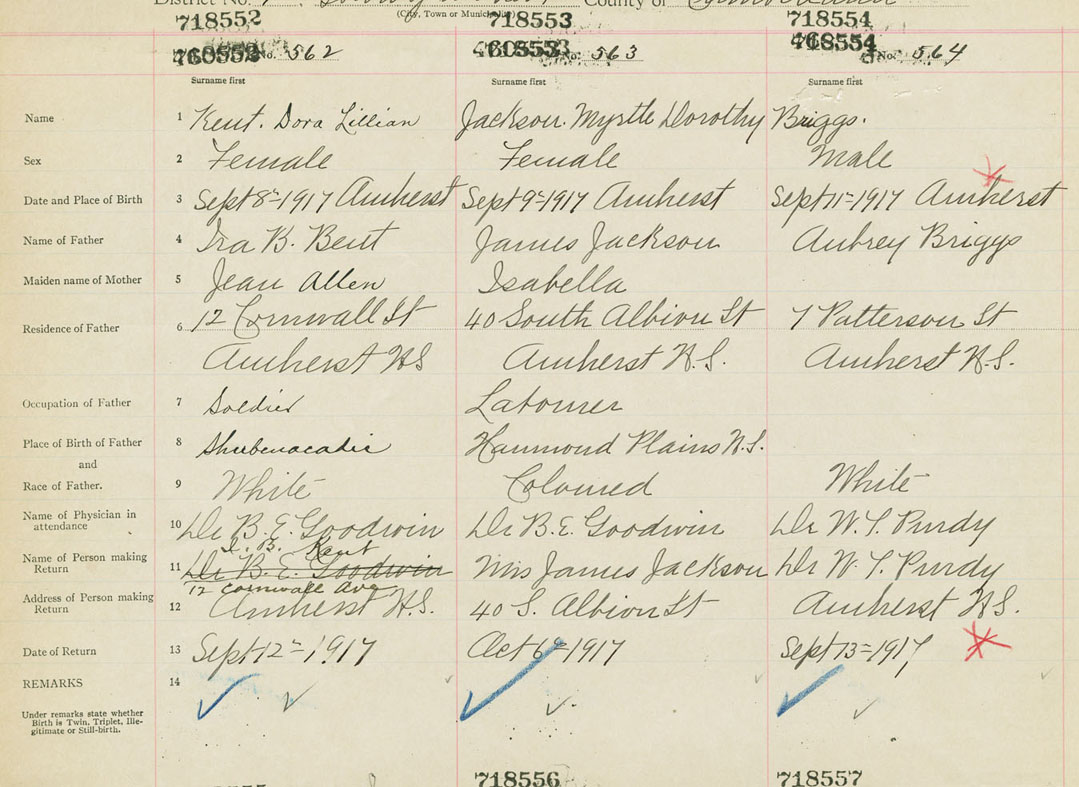 District No. County of Cumberland
(City, Town or Municipality)
718552 718553 718554
No. 562 No. 563 No. 564
Surname first Surname first Surname first
Name 1 Kent. Dora Lillian Jackson. Myrtle Dorothy Briggs.
Sex 2 Female Female Male
Date and Place of Birth 3 Sept 8=1917 Amherst Sept 9=1917 Amherst Sept 11=1917 Amherst
Name of Father 4 Ira B. Bent James Jackson Aubrey Briggs
Maiden name of Mother 5 Jean Allen Isabella
Residence of Father 6 12 Cornwall St 40 South Albion St 7 Patterson St
Amherst N S Amherst N.S. Amherst N.S.
Occupation of Father 7 Soldier Labourer
Place of Birth of Father 8 Shubenacadie Hammond Plains N.S.
and
Race of Father. 9 White Coloured White
Name of Physician in
attendance 10 Dr B. E. Goodwin Dr B. E. Goodwin Dr W. T. Purdy
I. B. Kent
Name of Person making
Return 11 Dr B. E. Goodwin Mrs James Jackson Dr W. T. Purdy
12 Cornwall Ave
Address of Person making
Return 12 Amherst N.S. 40 S. Albion St Amherst N.S.
Date of Return 13 Sept 12=1917 Oct 6=1917 Sept 13=1917
REMARKS 14
Under remarks state whether
Birth is Twin, Triplet, Ille-
gitimate or Still-birth.
718556 718557